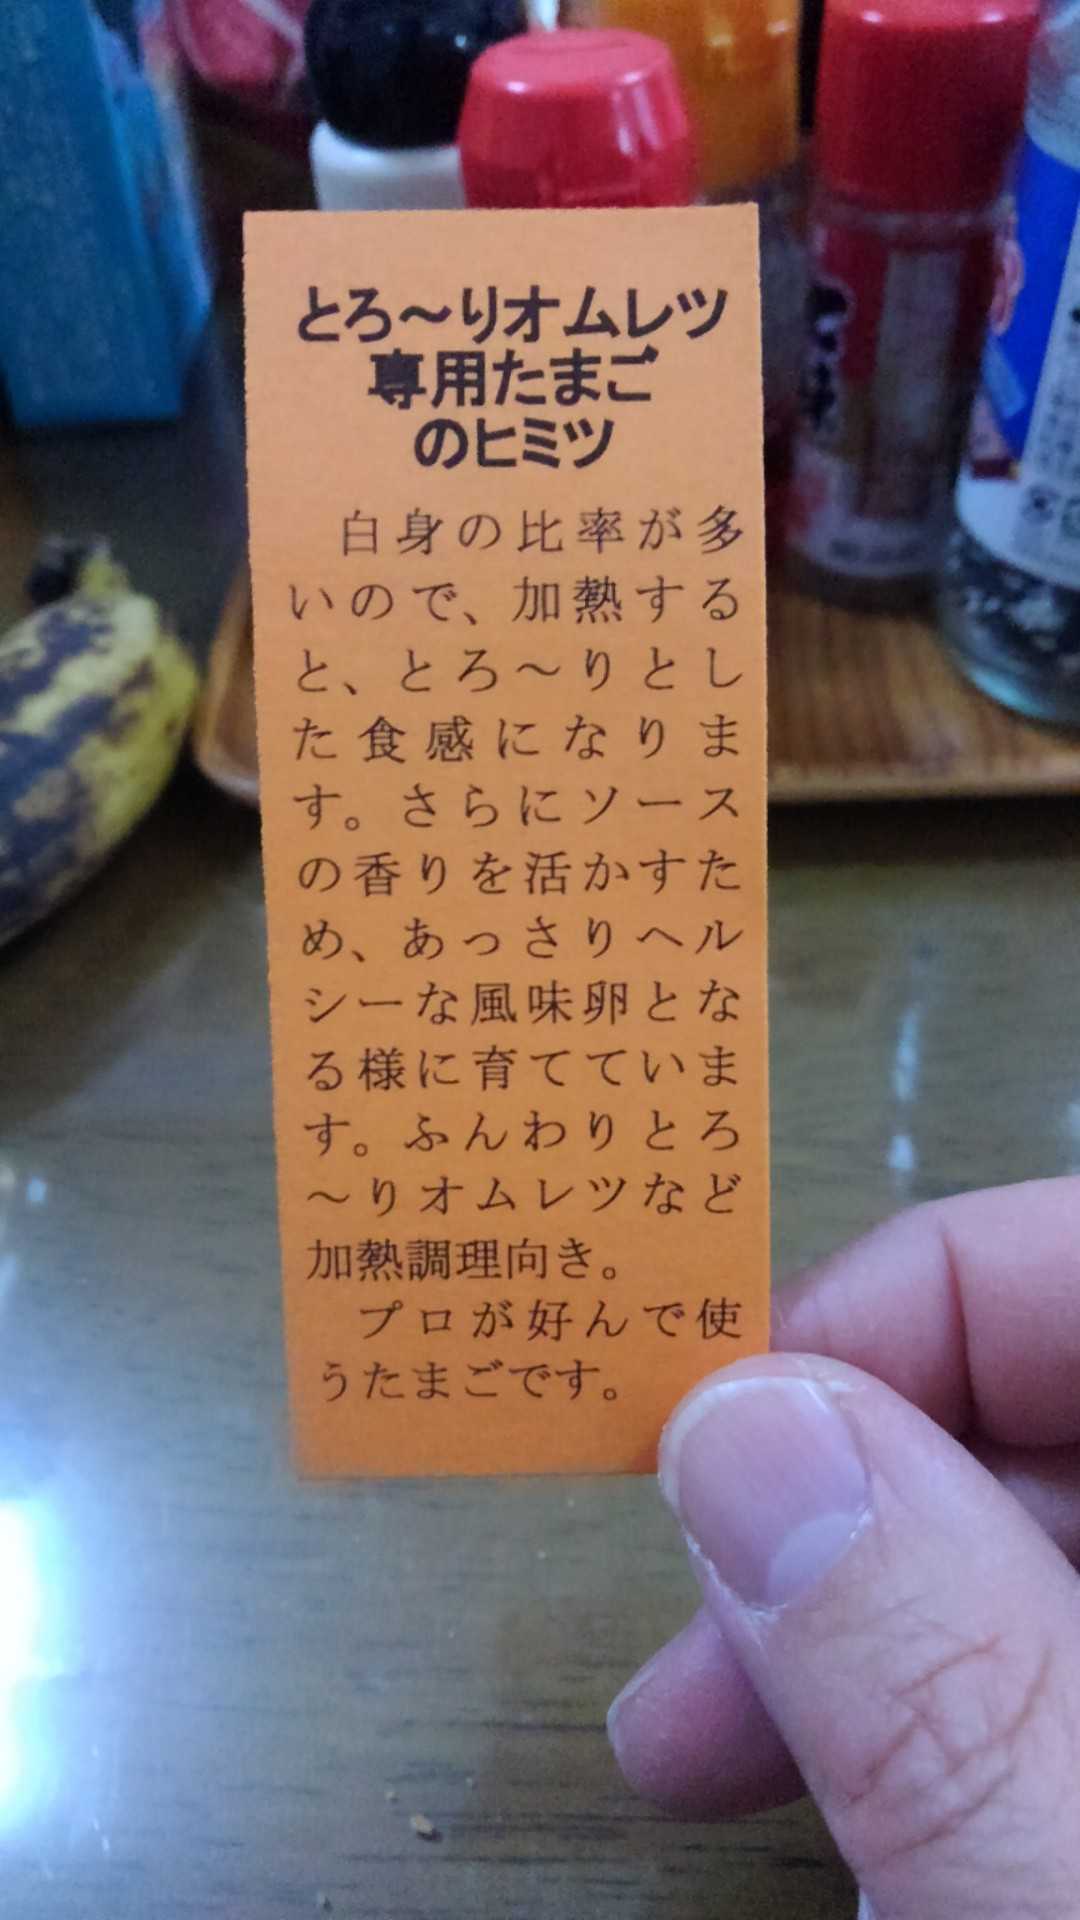 とろ〜りオムレツ
専用たまご
のヒミツ
白身の比率が多
いので、加熱する
と、とろ〜りとし
た食感になりま
す。さらにソース
の香りを活かすた
め、あっさりヘル
シーな風味卵とな
る様に育てていま
す。ふんわりとろ
〜りオムレツなど
加熱調理向き。
プロが好んで使
うたまごです。